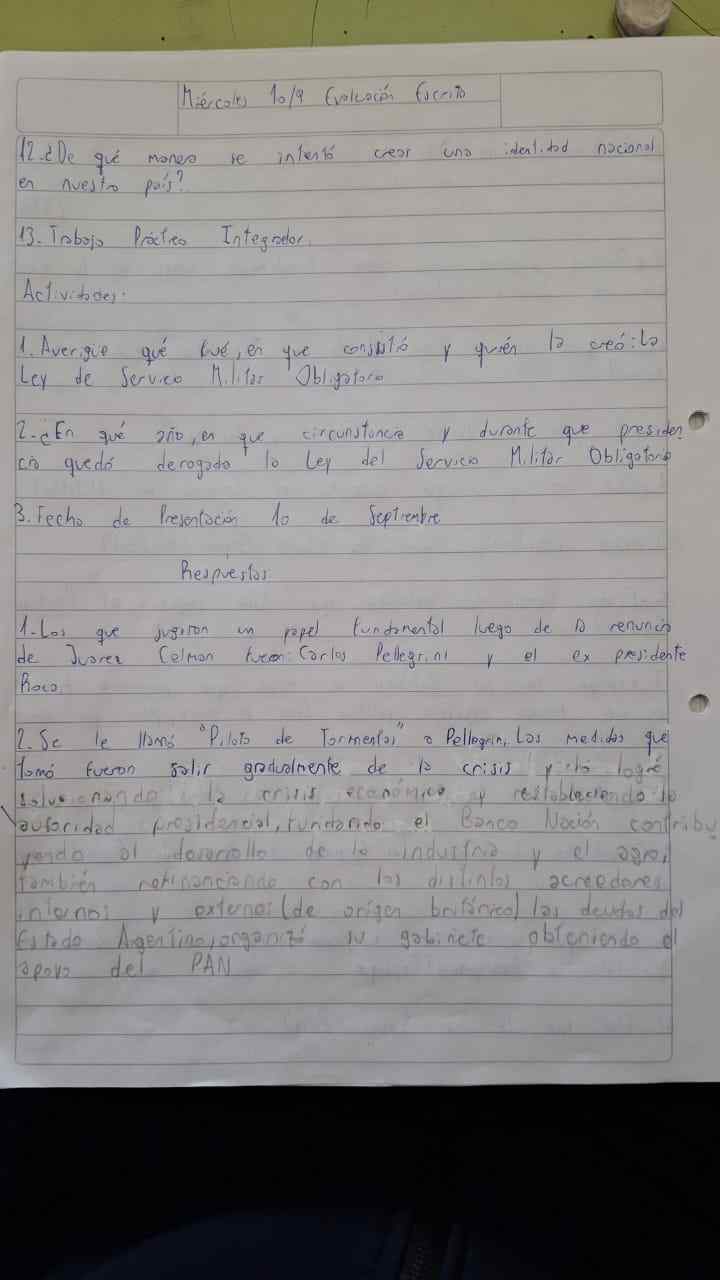 Miércoles 10/9 Evaluación Escrito
12.¿De qué manera se intentó crear una identidad nacional
en nuestro país?
13. Trabajo Práctico Integrador.
Actividades:
1. Averigüe qué fué, en que consistió y quién la creó: La
Ley de Servicio Militar Obligatorio
2-¿En qué año, en que circunstancia y durante que presiden
cia quedó derogada la Ley del Servicio Militar Obligatorio
3. Fecha de Presentación 10 de Septiembre
Respuestas
1-Los que jugaron un papel fundamental luego de la renuncia
de Juarez Celman fueron: Carlos Pellegrini y el ex presidente
Roca
2. Se le llamó "Piloto de Tormentas" a Pellegrini, Las medidas que
tomó fueron salir gradualmente de la crisis y lo logré
solucionando la crisis económica y restableciendo la
autoridad presidencial, fundando el Banco Nación contribu
yendo al desarrollo de la industria y el agro,
también refinanciando con los distintos acreedores
internos y externos (de origen británico) las deudas del
Estado Argentino, organizó su gabinete obteniendo el
apoyo del PAN